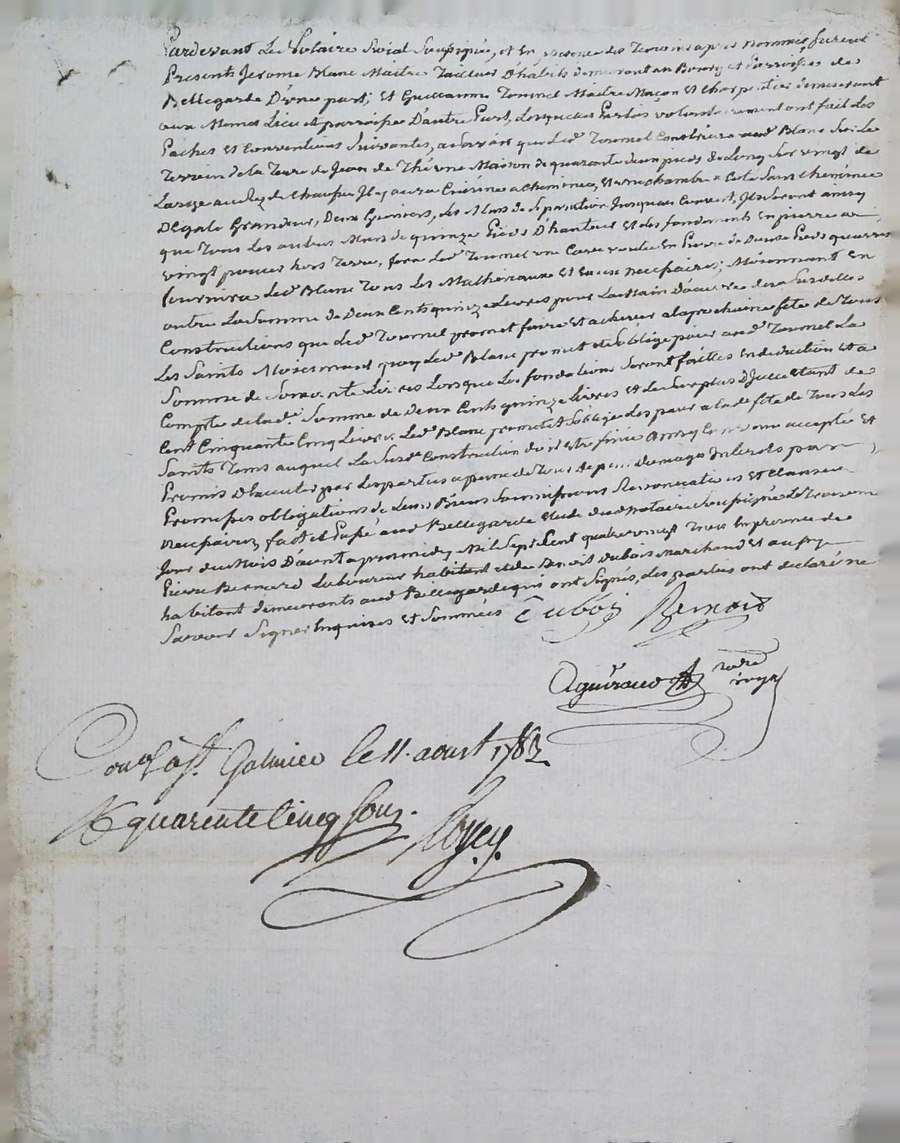 Pardevant Le Notaire Roïal Soussigné, et En presence des Temoins apres nommés furent
Presents Jerome Blanc Maitre Tailleur D'habits demeurant au Bourg et Parroisse de
Bellegarde D'une part; et Guillaume Tournel Maitre Maçon et Charpentier demeurant
aux Memes Lieu et parroisse D'autre Part, Lesquelles Parties volontairement ont fait Les
Paches et Conventions Suivantes, a Savoir que Led. Tournel Construira aud. Blanc Sur Le
Terrein de La Terre de Jean de Maison de quarante deux pieds de Long Sur vingt de
Large au Rez de Chaussée Il y aura Cuisine a Cheminée, et une chambre a Coté Sans Cheminée
D'Egale Grandeur, Deux Greniers, Les Murs de Separation Jusqu'au Couvert, Ils Seront ainsy
que Tous Les autres Murs de quinze Pieds D'hauteur et des fondements En pierre a
vingt pouces hors Terre, fera Led. Tournel une Cave voutée En Pierre de Douze Pieds quarrés
fournira Led. Blanc Tous Les Matheriaux Et Necessaires; Moïennant En
outre La Somme de Deux Cent quinze Livres pour La Main D'œuvre des Susdittes
Constructions que Led. Tournel promet faire Et achever a La prochaine fête de Tous
Les Saints Moïennant quoy Led. Blanc promet et S'oblige païer aud. Tournel La
Somme de Soixante Livres Lorsque Les fondations Seront faittes En deduction et a
Compte de Lad. Somme de Deux Cent quinze Livres et Le Surplus D'Icelle Etant de
Cent Cinquante Cinq Livres Led. Blanc promet et S'oblige Les païer a Lad. fête de Tous Les
Saints Tems auquel La Susd. Construction doit Etre finie Ainsy Convenu accepté et
Promis D'Executer par Les parties a peine de Tous Depens Domages Interets par
Promesses obligations de Leurs Biens Soumissions Renonciations et Clauses
Necessaires, fait et Passé aud. Bellegarde Etude dud. Notaire Soussigné Le Troisieme
Jour du Mois D'aoust apres midy Mil Sept Cent quatre vingt Trois En presence de
Pierre Bernard Laboureur habitant et de Benoit Dubois Marchand Et aussy
habitant demeurants aud. Bellegarde qui ont Signés, Les parties ont declaré ne
Savoir Signer Enquises Et Sommées Dubois Bernard
Aguiraud
notre
royal
Con. à St. Galmier le 11. aoust 1783
R quarente Cinq Sous.